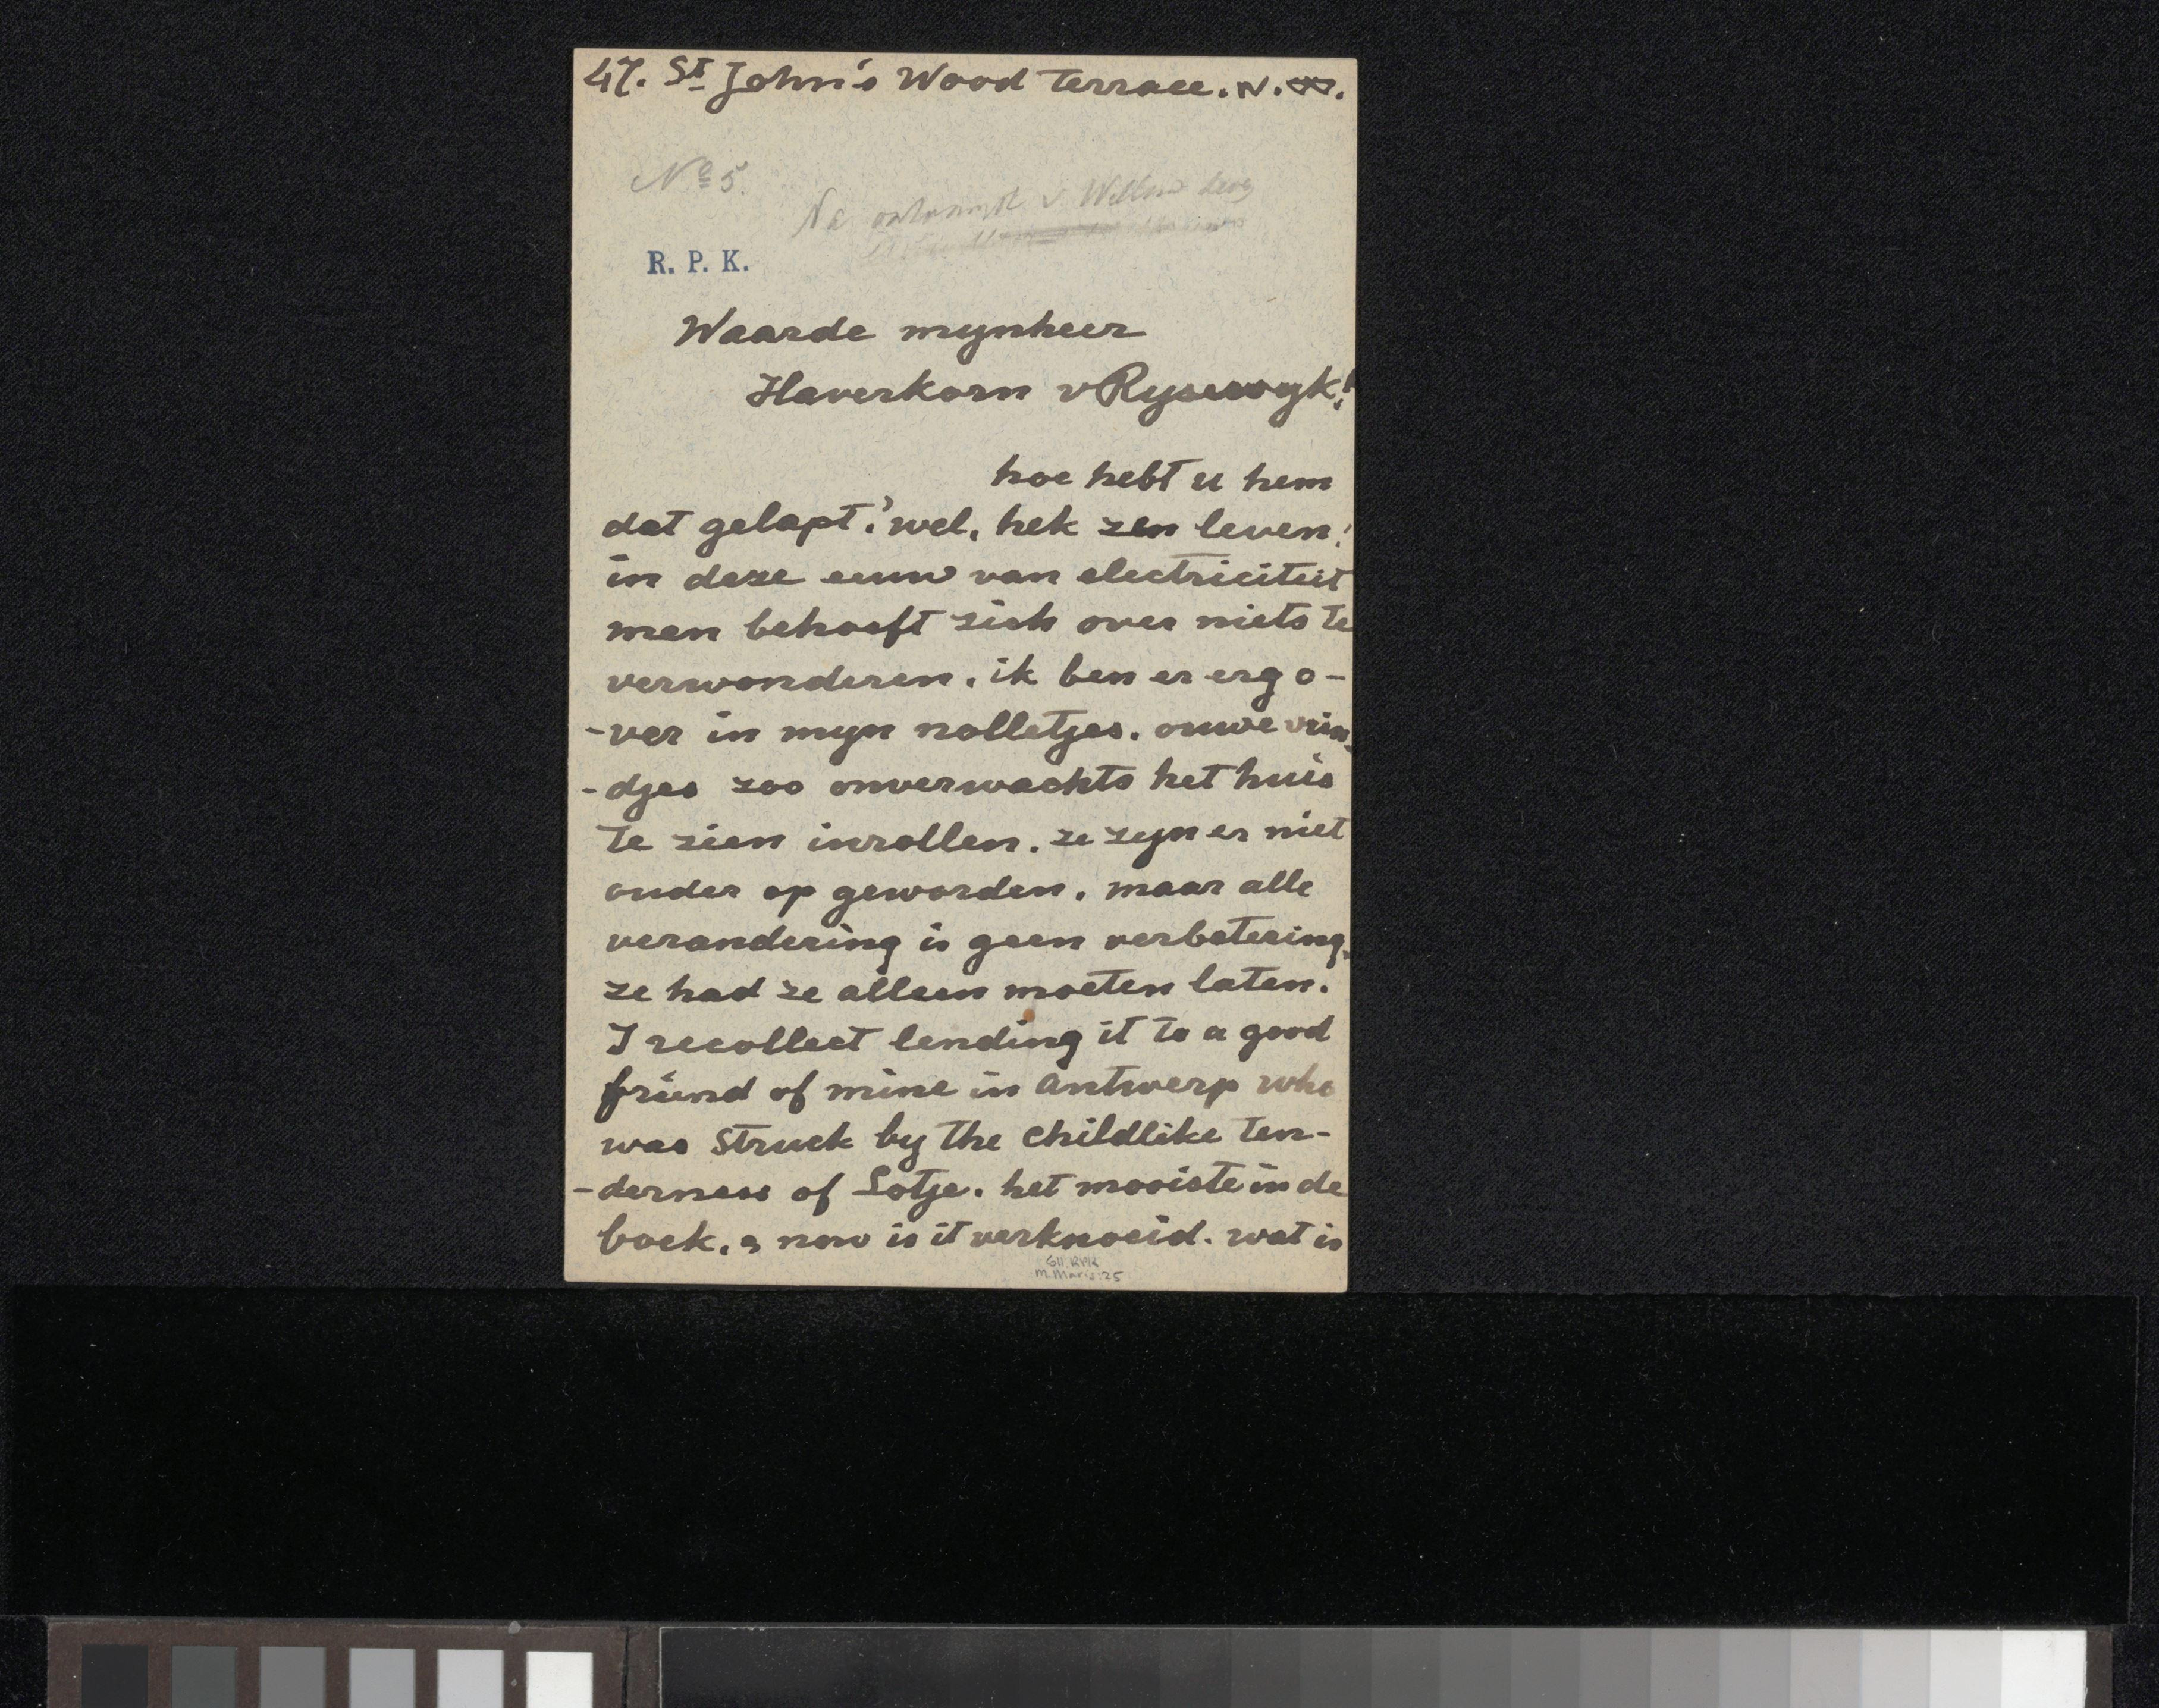 47. St John's Wood Terrace. N.W.
No 5.
Na ontvangst v Willem
R. P. K.
Waarde mynheer
Haverkorn v Rysewyk!
hoe hebt u hem
dat gelapt? wel, hek zen leven!
in deze eeuw van electriciteit
men behoeft zich over niets te
verwonderen. ik ben er erg o-
-ver in myn nolletjes. ouwe vrin-
-djes zoo onverwachts het huis
te zien inrollen. ze zyn er niet
ouder op geworden. maar alle
verandering is geen verbetering.
ze had ze alleen moeten laten.
I recollect lending it to a good
friend of mine in Antwerp who
was struck by the childlike ten-
-derness of Lotje. het mooiste in de
boek. & now is it verknoeid. wat is
611 RPK
M. Maris: 25